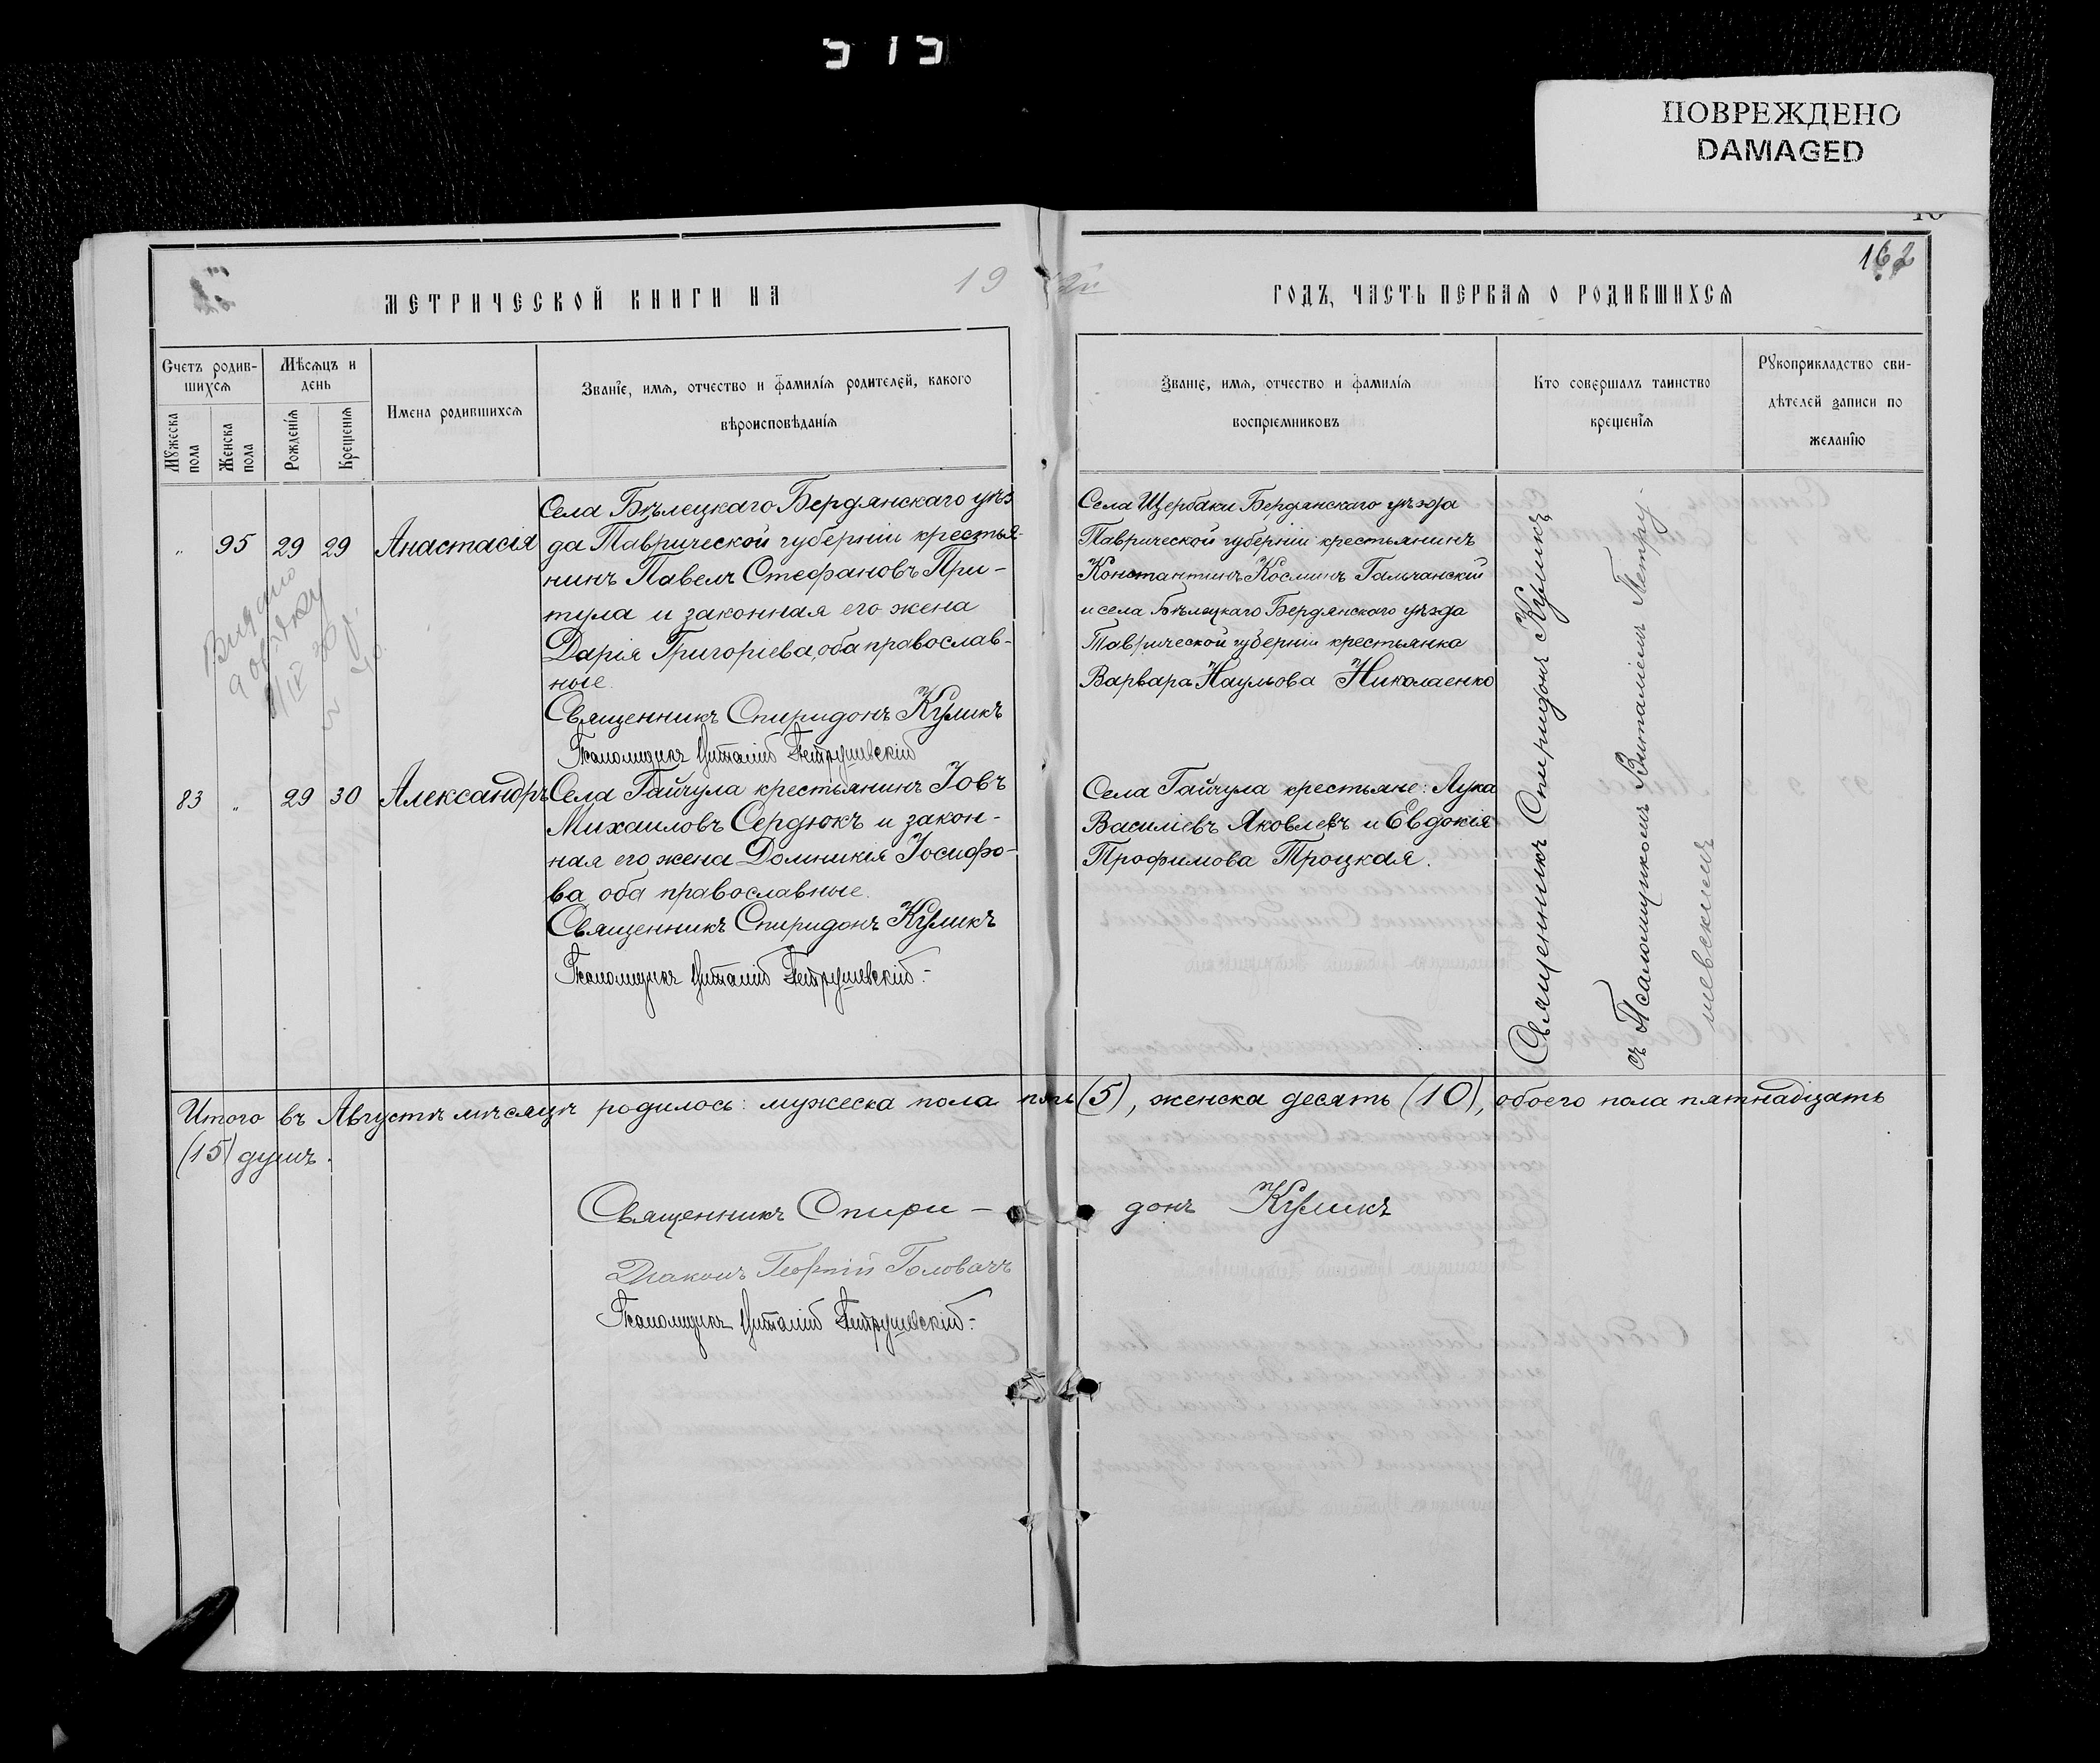 ПОВРЕЖДЕНО
DAMAGED
162
МЕТРИЧЕСКОЙ КНИГИ НА
19
ГОДЪ, ЧАСТЬ ПЕРВАЯ О РОДИВШИХСЯ
Счетъ родив-
шихся
Мѣсяцъ и
день
Имена родившихся
Званіе, имя, отчество и фамилія родителей, какого
вѣроисповѣданія
Мужеска
пола
Женска
пола
Рожденія
Крещенія
Званіе, имя, отчество и фамилія
воспріемниковъ
Кто совершалъ таинство
крещенія
Рукоприкладство сви-
дѣтелей записи по
желанію
„ 95 29 29 Анастасія
Села Бѣлецкаго Бердянскаго уѣз
да Таврической губерніи крестья-
нинъ Павелъ Стефановъ При-
тула и законная его жена
Дарія Григоріева, оба православ-
ные.
Священникъ Спиридонъ Куликъ
Псаломщикъ Виталій Петрушевскій
Села Щербаки Бердянскаго уѣзда
Таврической губерніи крестьянинъ
Константинъ Косминъ Гальчанскій
и села Бѣлецкаго Бердянскаго уѣзда
Таврической губерніи крестьянка
Варвара Наумова Николаенко
83 „ 29 30 Александръ
Села Гайчула крестьянинъ Іовъ
Михаиловъ Сердюкъ и закон-
ная его жена Домникія Іосифо-
ва, оба православные.
Священникъ Спиридонъ Куликъ
Псаломщикъ Виталій Петрушевскій.-
Села Гайчула крестьяне: Лука
Василіевъ Яковлевъ и Евдокія
Трофимова Троцкая.
Священникъ Спиридонъ Куликъ
съ Псаломщикомъ Виталіемъ Петру-
шевскимъ
Итого въ Августѣ мѣсяцѣ родилось: мужеска пола пять (5), женска десять (10), обоего пола пятнадцать
(15) душъ.
Священникъ Спири- донъ Куликъ
Діаконъ Георгій Головачъ
Псаломщикъ Виталій Петрушевскій.-